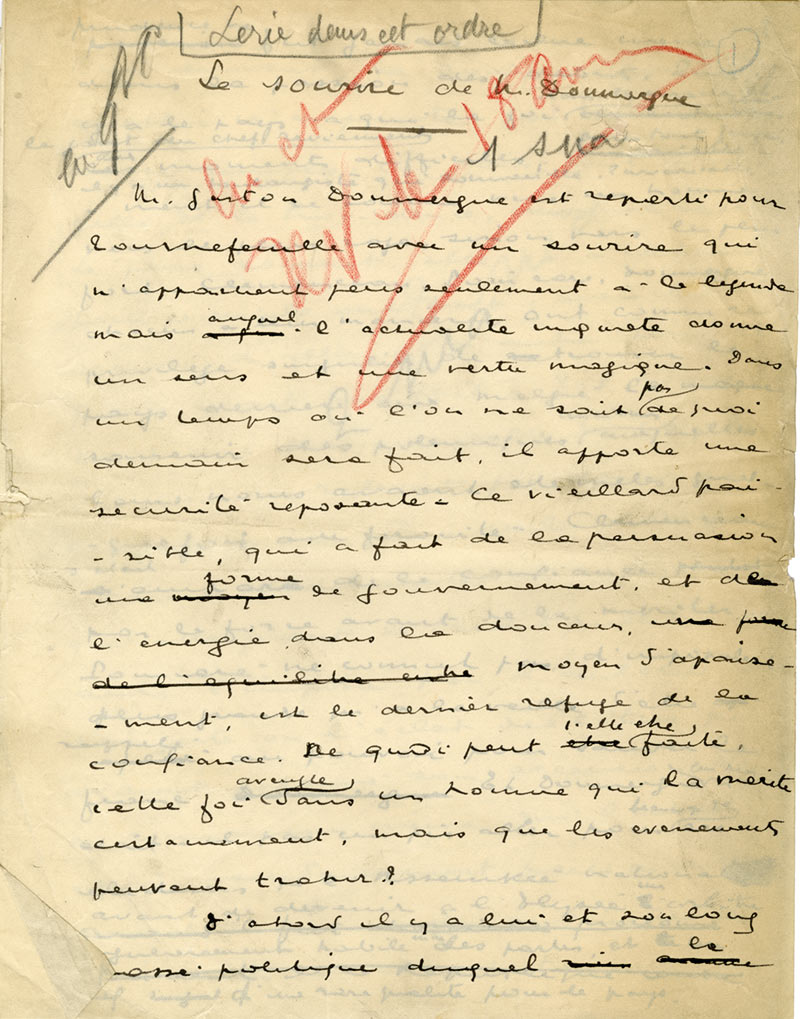 Serie dans cet ordre
1
Le sourire de M. Doumergue
en 9
M. Gaston Doumergue est reparti pour
Tournefeuille avec un sourire qui
n'appartient plus seulement à la légende
mais auquel l'actualité inquiète donne
un sens et une vertu magique. Dans
un temps où l'on ne sait pas de quoi
demain sera fait, il apporte une
sécurité reposante - Ce vieillard pai-
-sible, qui a fait de la persuasion
une moyen forme de gouvernement, et de
l'énergie dans la douceur, une forme
de l'équilibre entre moyen d'apaise-
-ment, est le dernier refuge de la
confiance. De quoi peut etre t'elle etre faite,
cette foi aveugle dans un homme qui la mérite
certainement, mais que les evenements
peuvent trahir ?
D'abord il y a lui et son long
passé politique duquel rien la